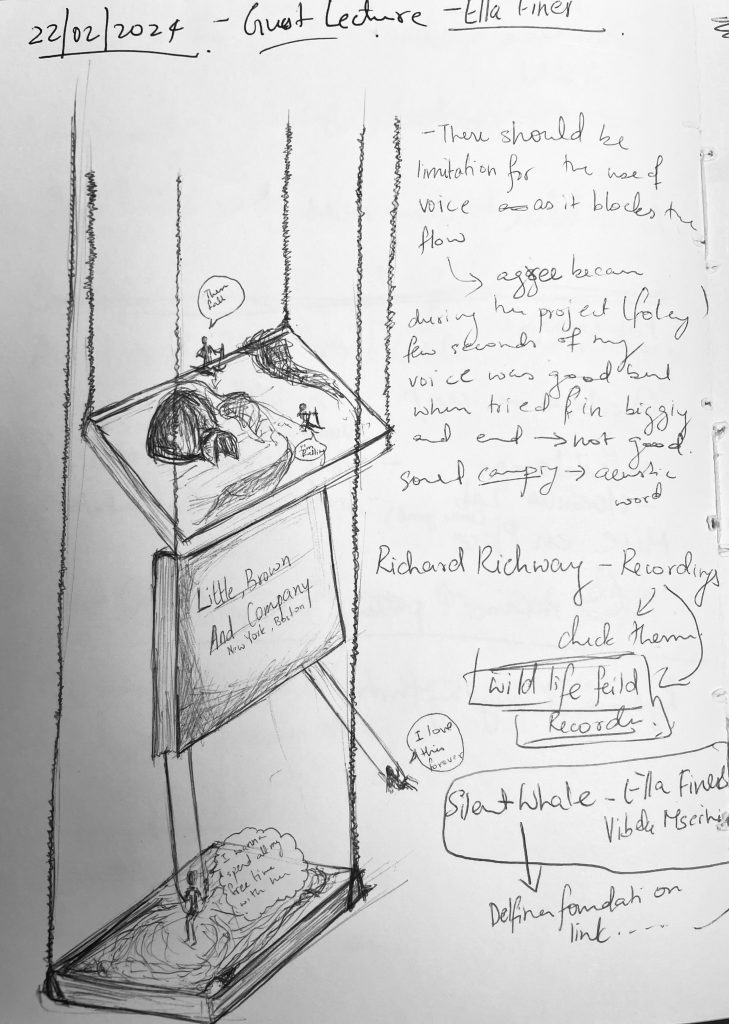 22/02/2024 - Guest Lecture - Ella Finer
- There should be
limitation for the use of
voice as it blocks the
flow
agree becau
during the project (foley)
few seconds of my
voice was good but
when tried in
and end → not good.
sound → acoustic
word
Richard Richway - Recordings
check them
wild life feild
Recordi
Silent Whale - Ella Finer
Vibeke
foundation
link.....
Little, Brown
And Company
New York, Boston
I love
this
forever
I wanna
spend all my
free time
with her